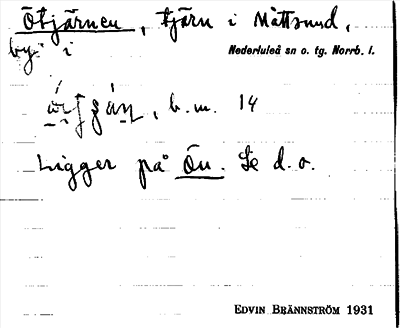 Ötjärnen, tjärn i Måttsund,
by i Nederluleå sn o. tg. Norrb. l.
b.m. 14
Ligger på Ön. Se d.o.
EDVIN BRÄNNSTRÖM 1931